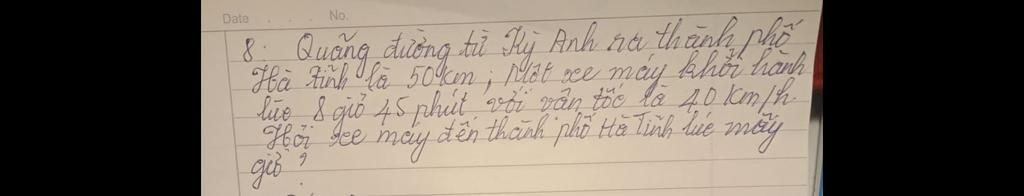 Date . . . No.
8: Quãng đường từ Kỳ Anh ra thành phố
Hà Tĩnh là 50 km; Một xe máy khởi hành
lúc 8 giờ 45 phút với vận tốc là 40 km/h.
Hỏi xe máy đến thành phố Hà Tĩnh lúc mấy
giờ?